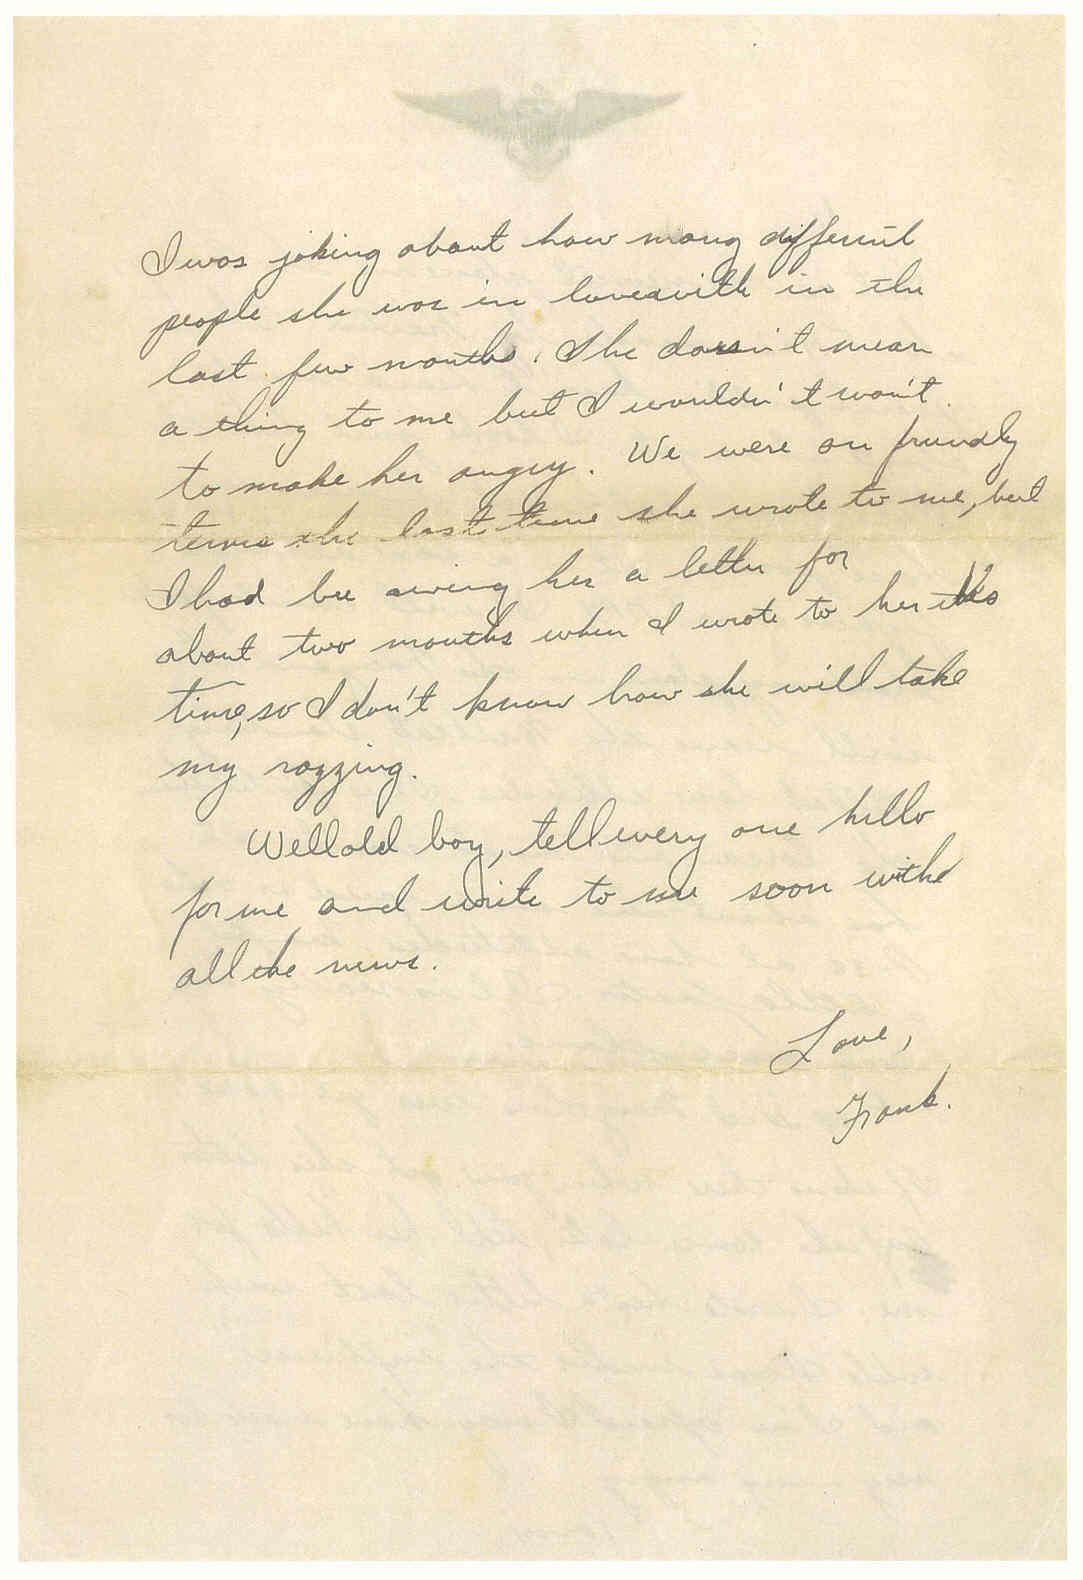 I was joking about how many different
people she was in love with in the
last few months. She doesn't mean
a thing to me but I wouldn't won't
to make her angry. We were on friendly
terms the last time she wrote to me, but
I had be owing her a letter for
about two months when I wrote to her this
time, so I don't know how she will take
my razzing.
Well old boy, tell every one hello
for me and write to me soon with
all the news.
Love,
Frank.